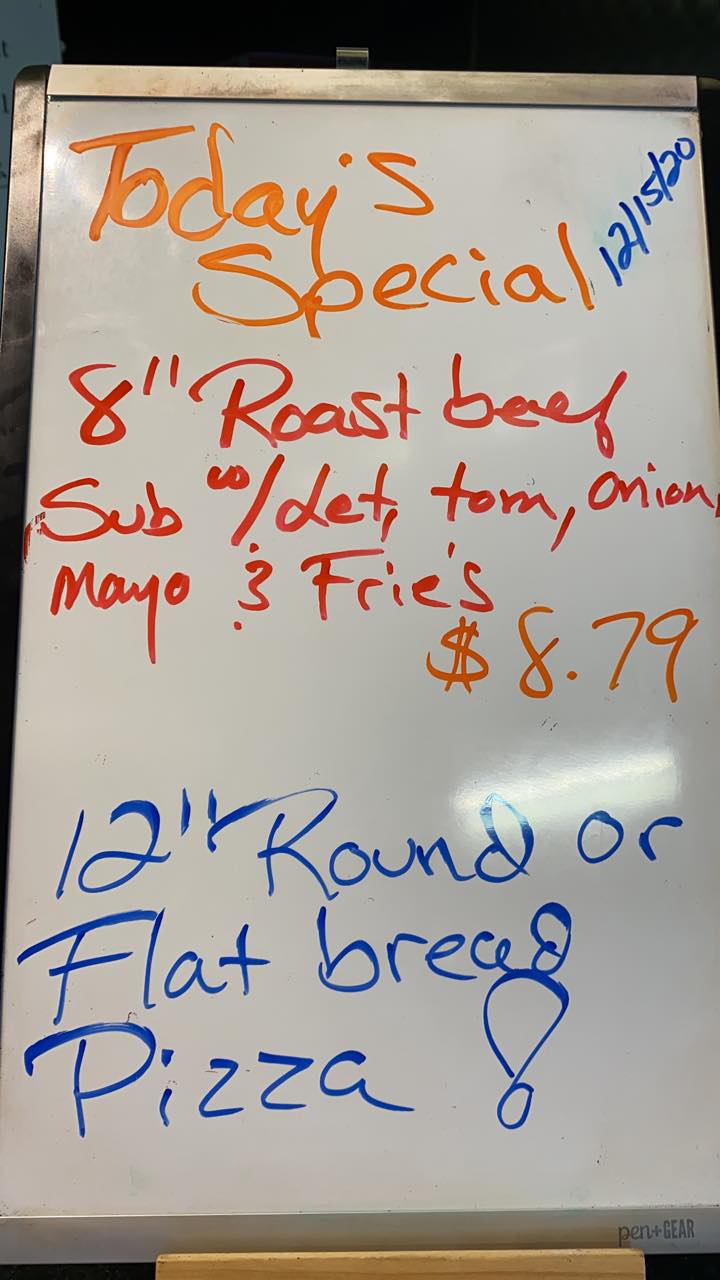 Today's
Special
12/15/20
8" Roast beef
Sub w/let, tom, onion,
Mayo & Frie's
$8.79
12" Round or
Flat bread
Pizza !
pen+GEAR